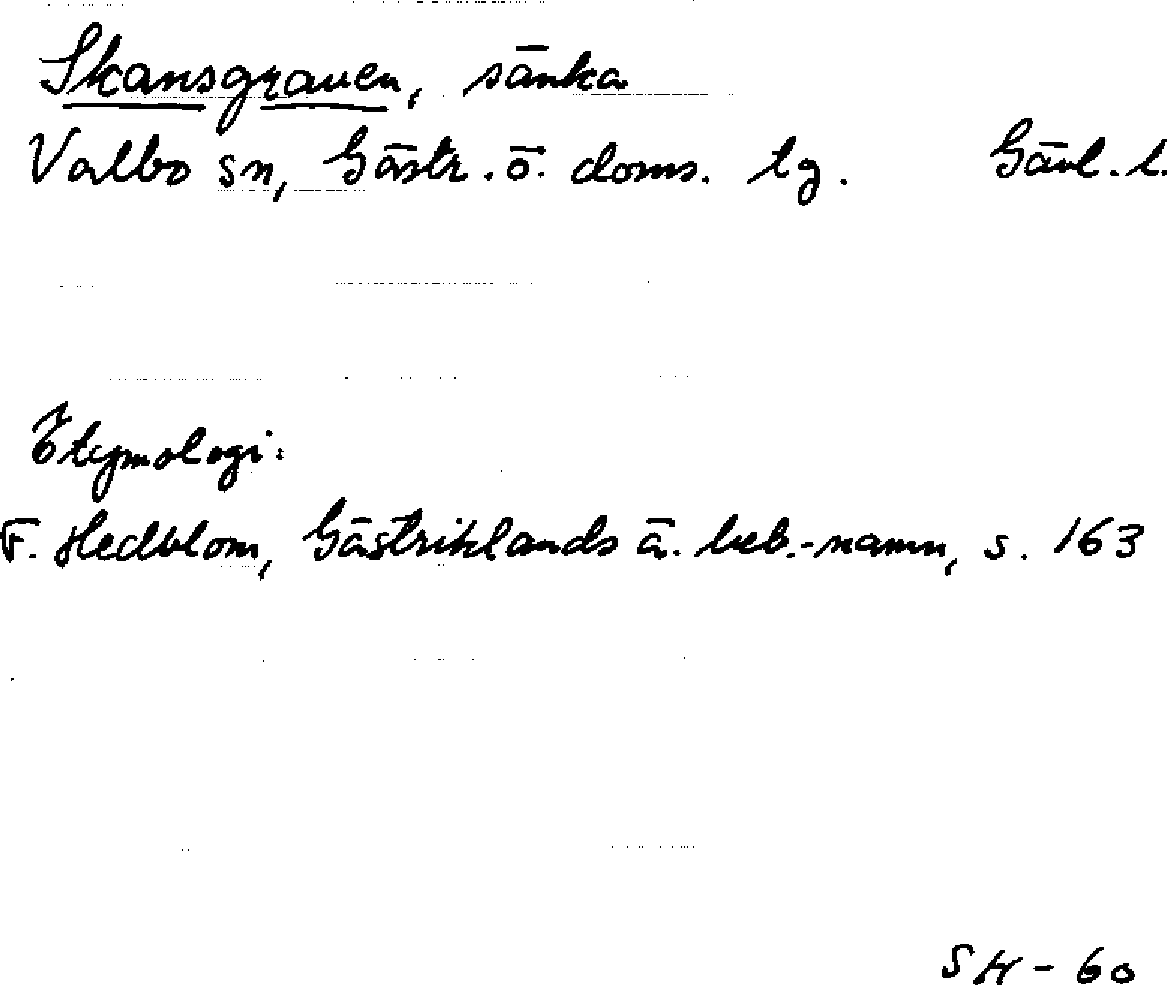 Skansgraven, sänka
Valbo sn, Gästr. ö. doms. tg. Gävl. l.
Etymologi:
F. Hedblom, Gästriklands ä. beb.-namn, s. 163
SH - 60